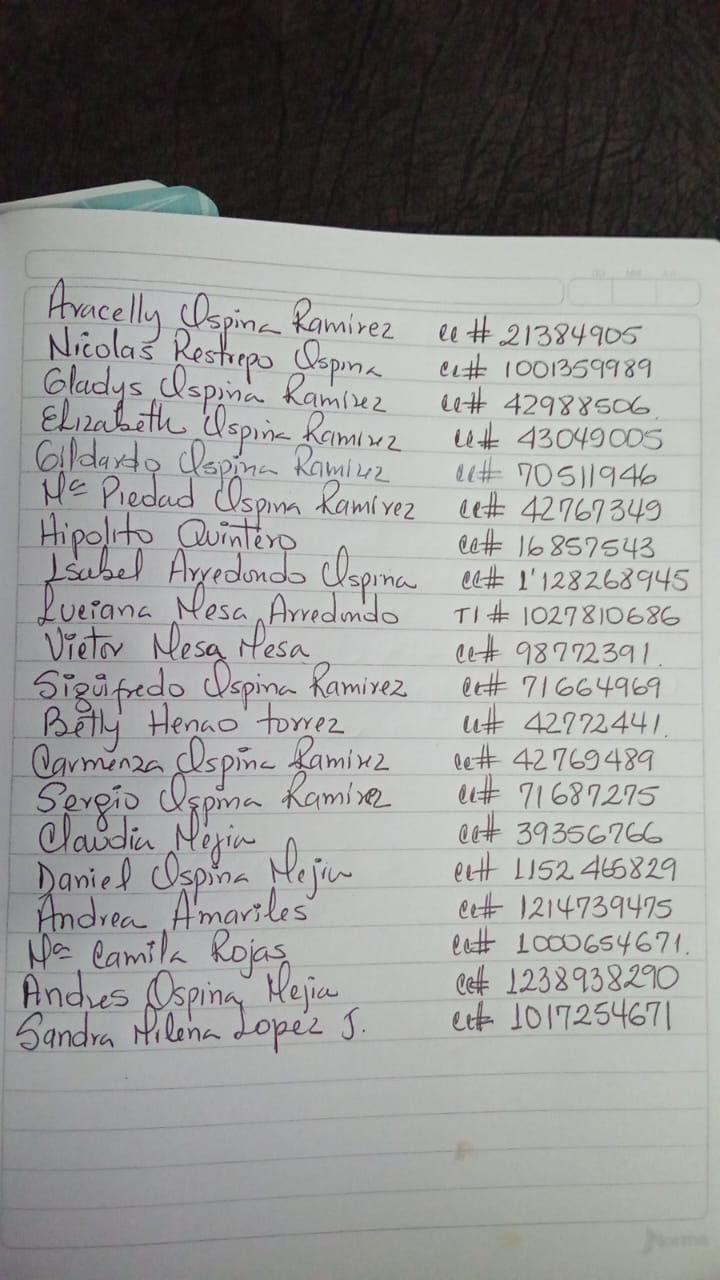 Aracelly Ospina Ramirez cc # 21384905
Nicolas Restrepo Ospina cc# 1001359989
Gladys Ospina Ramirez cc# 42988506.
Elizabeth Ospina Ramirez cc# 43049005
Gildardo Ospina Ramirez cc# 70511946
Mª Piedad Ospina Ramirez cc# 42767349
Hipolito Quintero cc# 16857543
Isabel Arredondo Ospina cc# 1'128268945
Luciana Mesa Arredondo TI # 1027810686
Victor Mesa Mesa cc# 98772391.
Sigüifredo Ospina Ramirez cc# 71664969
Betty Henao torrez cc# 42772441.
Carmenza Ospina Ramirez cc# 42769489
Sergio Ospina Ramirez cc# 71687275
Claudia Mejia cc# 39356766
Daniel Ospina Mejia cc# 1152465829
Andrea Amariles cc# 1214739475
Mª Camila Rojas cc# 1000654671.
Andres Ospina Mejia cc# 1238938290
Sandra Milena Lopez J. cc# 1017254671
Norma